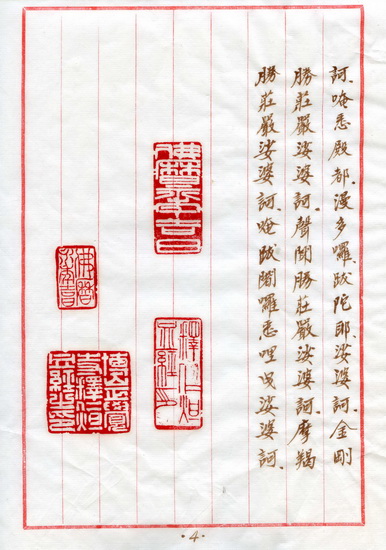 訶.唵悉殿都.漫多囉.跋陀耶.娑婆訶.金剛
勝莊嚴娑婆訶.聲聞勝莊嚴娑婆訶.摩羯
勝莊嚴娑婆訶.唵跋闍囉悉哩曳娑婆訶.
·4·